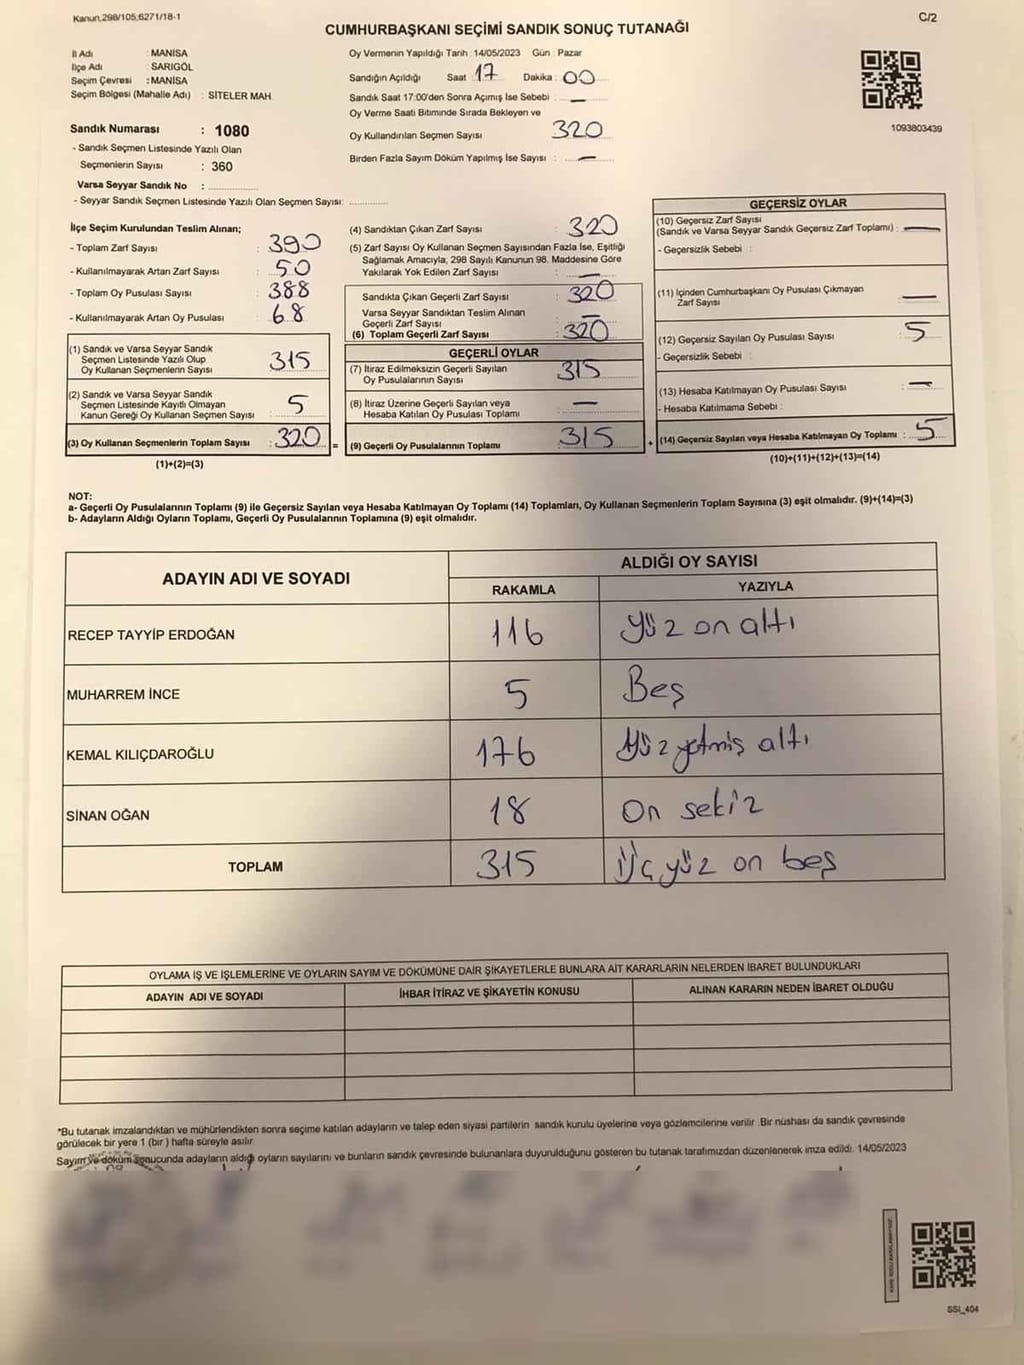 Kanun,298/105,6271/18-1
C/2
CUMHURBAŞKANI SEÇİMİ SANDIK SONUÇ TUTANAĞI
İl Adı : MANİSA
İlçe Adı : SARIGÖL
Seçim Çevresi : MANİSA
Seçim Bölgesi (Mahalle Adı) : SİTELER MAH.
Sandık Numarası : 1080
- Sandık Seçmen Listesinde Yazılı Olan
Seçmenlerin Sayısı : 360
Varsa Seyyar Sandık No :
- Seyyar Sandık Seçmen Listesinde Yazılı Olan Seçmen Sayısı:
Oy Vermenin Yapıldığı Tarih : 14/05/2023 Gün : Pazar
Sandığın Açıldığı Saat : 17 Dakika : 00
Sandık Saat 17:00'den Sonra Açımış İse Sebebi : —
Oy Verme Saati Bitiminde Sırada Bekleyen ve
Oy Kullandırılan Seçmen Sayısı 320
Birden Fazla Sayım Döküm Yapılmış İse Sayısı : —
1093803439
İlçe Seçim Kurulundan Teslim Alınan;
- Toplam Zarf Sayısı : 390
- Kullanılmayarak Artan Zarf Sayısı : 50
- Toplam Oy Pusulası Sayısı : 388
- Kullanılmayarak Artan Oy Pusulası : 68
(1) Sandık ve Varsa Seyyar Sandık
Seçmen Listesinde Yazılı Olup
Oy Kullanan Seçmenlerin Sayısı 315
(2) Sandık ve Varsa Seyyar Sandık
Seçmen Listesinde Kayıtlı Olmayan
Kanun Gereği Oy Kullanan Seçmen Sayısı : 5
(3) Oy Kullanan Seçmenlerin Toplam Sayısı : 320 =
(1)+(2)=(3)
(4) Sandıktan Çıkan Zarf Sayısı : 320
(5) Zarf Sayısı Oy Kullanan Seçmen Sayısından Fazla İse, Eşitliği
Sağlamak Amacıyla, 298 Sayılı Kanunun 98. Maddesine Göre
Yakılarak Yok Edilen Zarf Sayısı : —
Sandıkta Çıkan Geçerli Zarf Sayısı : 320
Varsa Seyyar Sandıktan Teslim Alınan
Geçerli Zarf Sayısı : —
(6) Toplam Geçerli Zarf Sayısı : 320
GEÇERLİ OYLAR
(7) İtiraz Edilmeksizin Geçerli Sayılan
Oy Pusulalarının Sayısı : 315
(8) İtiraz Üzerine Geçerli Sayılan veya
Hesaba Katılan Oy Pusulası Toplamı : —
(9) Geçerli Oy Pusulalarının Toplamı : 315 +
GEÇERSİZ OYLAR
(10) Geçersiz Zarf Sayısı
(Sandık ve Varsa Seyyar Sandık Geçersiz Zarf Toplamı) : —
- Geçersizlik Sebebi :
(11) İçinden Cumhurbaşkanı Oy Pusulası Çıkmayan
Zarf Sayısı : —
(12) Geçersiz Sayılan Oy Pusulası Sayısı : 5
- Geçersizlik Sebebi :
(13) Hesaba Katılmayan Oy Pusulası Sayısı : —
- Hesaba Katılmama Sebebi :
(14) Geçersiz Sayılan veya Hesaba Katılmayan Oy Toplamı : 5
(10)+(11)+(12)+(13)=(14)
NOT:
a- Geçerli Oy Pusulalarının Toplamı (9) ile Geçersiz Sayılan veya Hesaba Katılmayan Oy Toplamı (14) Toplamları, Oy Kullanan Seçmenlerin Toplam Sayısına (3) eşit olmalıdır. (9)+(14)=(3)
b- Adayların Aldığı Oyların Toplamı, Geçerli Oy Pusulalarının Toplamına (9) eşit olmalıdır.
ADAYIN ADI VE SOYADI ALDIĞI OY SAYISI
RAKAMLA YAZIYLA
RECEP TAYYİP ERDOĞAN 116 Yüz on altı
MUHARREM İNCE 5 Beş
KEMAL KILIÇDAROĞLU 176 Yüz yetmiş altı
SİNAN OĞAN 18 On sekiz
TOPLAM 315 Üçyüz on beş
OYLAMA İŞ VE İŞLEMLERİNE VE OYLARIN SAYIM VE DÖKÜMÜNE DAİR ŞİKAYETLERLE BUNLARA AİT KARARLARIN NELERDEN İBARET BULUNDUKLARI
ADAYIN ADI VE SOYADI İHBAR İTİRAZ VE ŞİKAYETİN KONUSU ALINAN KARARIN NEDEN İBARET OLDUĞU
*Bu tutanak imzalandıktan ve mühürlendikten sonra seçime katılan adayların ve talep eden siyasi partilerin sandık kurulu üyelerine veya gözlemcilerine verilir. Bir nüshası da sandık çevresinde
görülecek bir yere 1 (bir) hafta süreyle asılır.
Sayım ve döküm sonucunda adayların aldığı oyların sayılarını ve bunların sandık çevresinde bulunanlara duyurulduğunu gösteren bu tutanak tarafımızdan düzenlenerek imza edildi. 14/05/2023
SSI_404